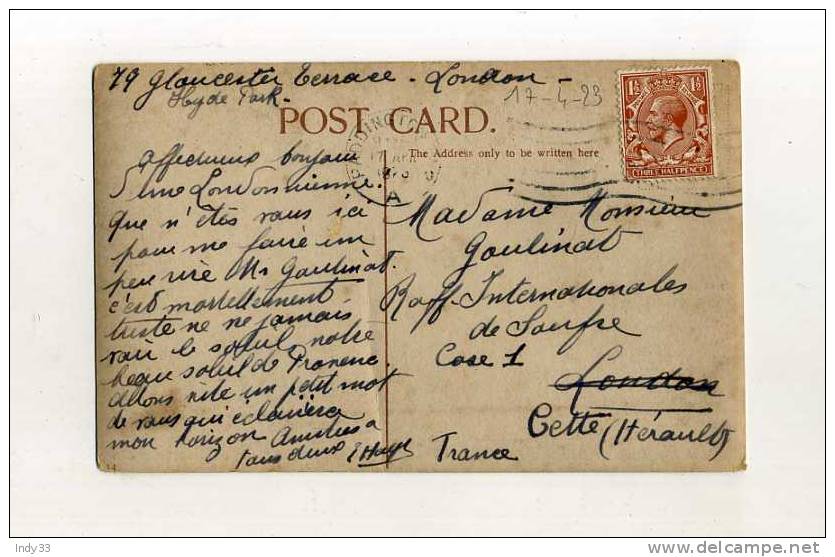 79 Gloucester Terrace - London -
Hyde Park -
17-4-23
1½ 1½
THREE HALFPENCE
POST CARD.
PADDINGTON
17 APR
A
The Address only to be written here
affectueux bonjour
d'une Londonnienne.
Que n'êtes vous ici
pour me faire un
peu rire Mr Goulinat.
c'est mortellement
triste ne ne jamais
voir le soleil, notre
beau soleil de Provence
allons vite un petit mot
de vous qui éclairera
mon horizon Amitiés à
tous deux
Madame Monsieur
Goulinat
Raff. Internationales
de Soufre
Case 1
London
Cette (Hérault)
France
Indy33
www.delcampe.net